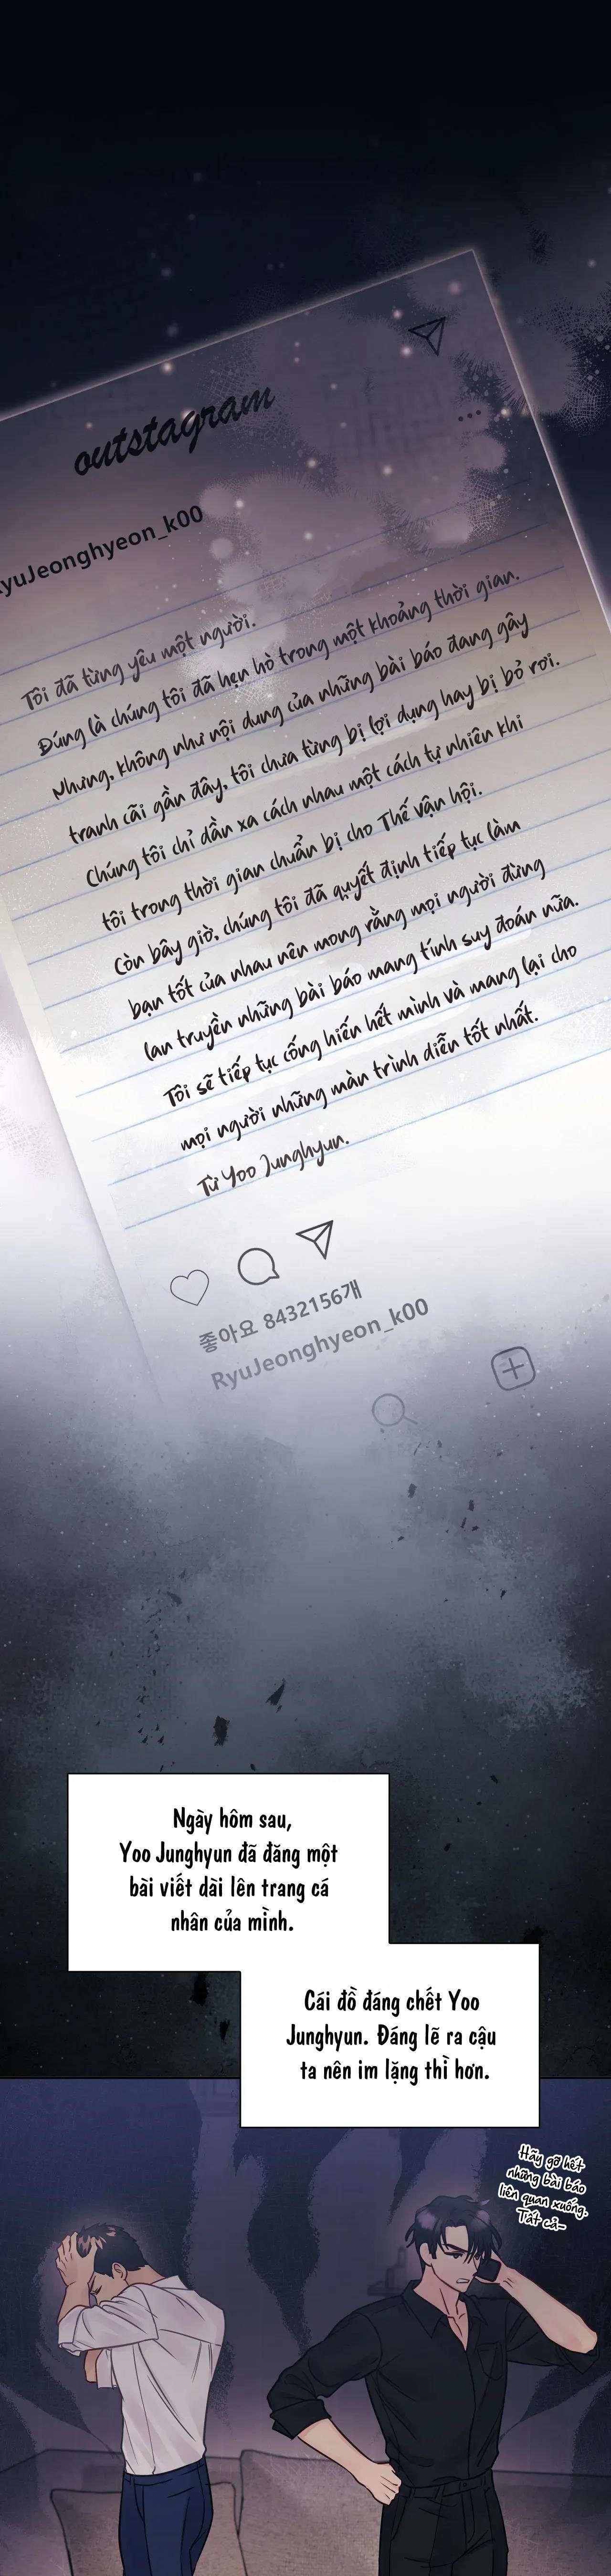 outstagram
RyuJeonghyeon_k00
Tôi đã từng yêu một người.
Đúng là chúng tôi đã hẹn hò trong một khoảng thời gian.
Nhưng, không như nội dung của những bài báo đang gây
tranh cãi gần đây, tôi chưa từng bị lợi dụng hay bị bỏ rơi.
Chúng tôi chỉ dần xa cách nhau một cách tự nhiên khi
tôi trong thời gian chuẩn bị cho Thế vận hội.
Còn bây giờ, chúng tôi đã quyết định tiếp tục làm
bạn tốt của nhau nên mong rằng mọi người đừng
lan truyền những bài báo mang tính suy đoán nữa.
Tôi sẽ tiếp tục cống hiến hết mình và mang lại cho
mọi người những màn trình diễn tốt nhất.
Từ Yoo Junghyun.
좋아요 8432156개
RyuJeonghyeon_k00
Ngày hôm sau,
Yoo Junghyun đã đăng một
bài viết dài lên trang cá
nhân của mình.
Cái đồ đáng chết Yoo
Junghyun. Đáng lẽ ra cậu
ta nên im lặng thì hơn.
Hãy gỡ hết
những bài báo
liên quan xuống.
Tất cả~